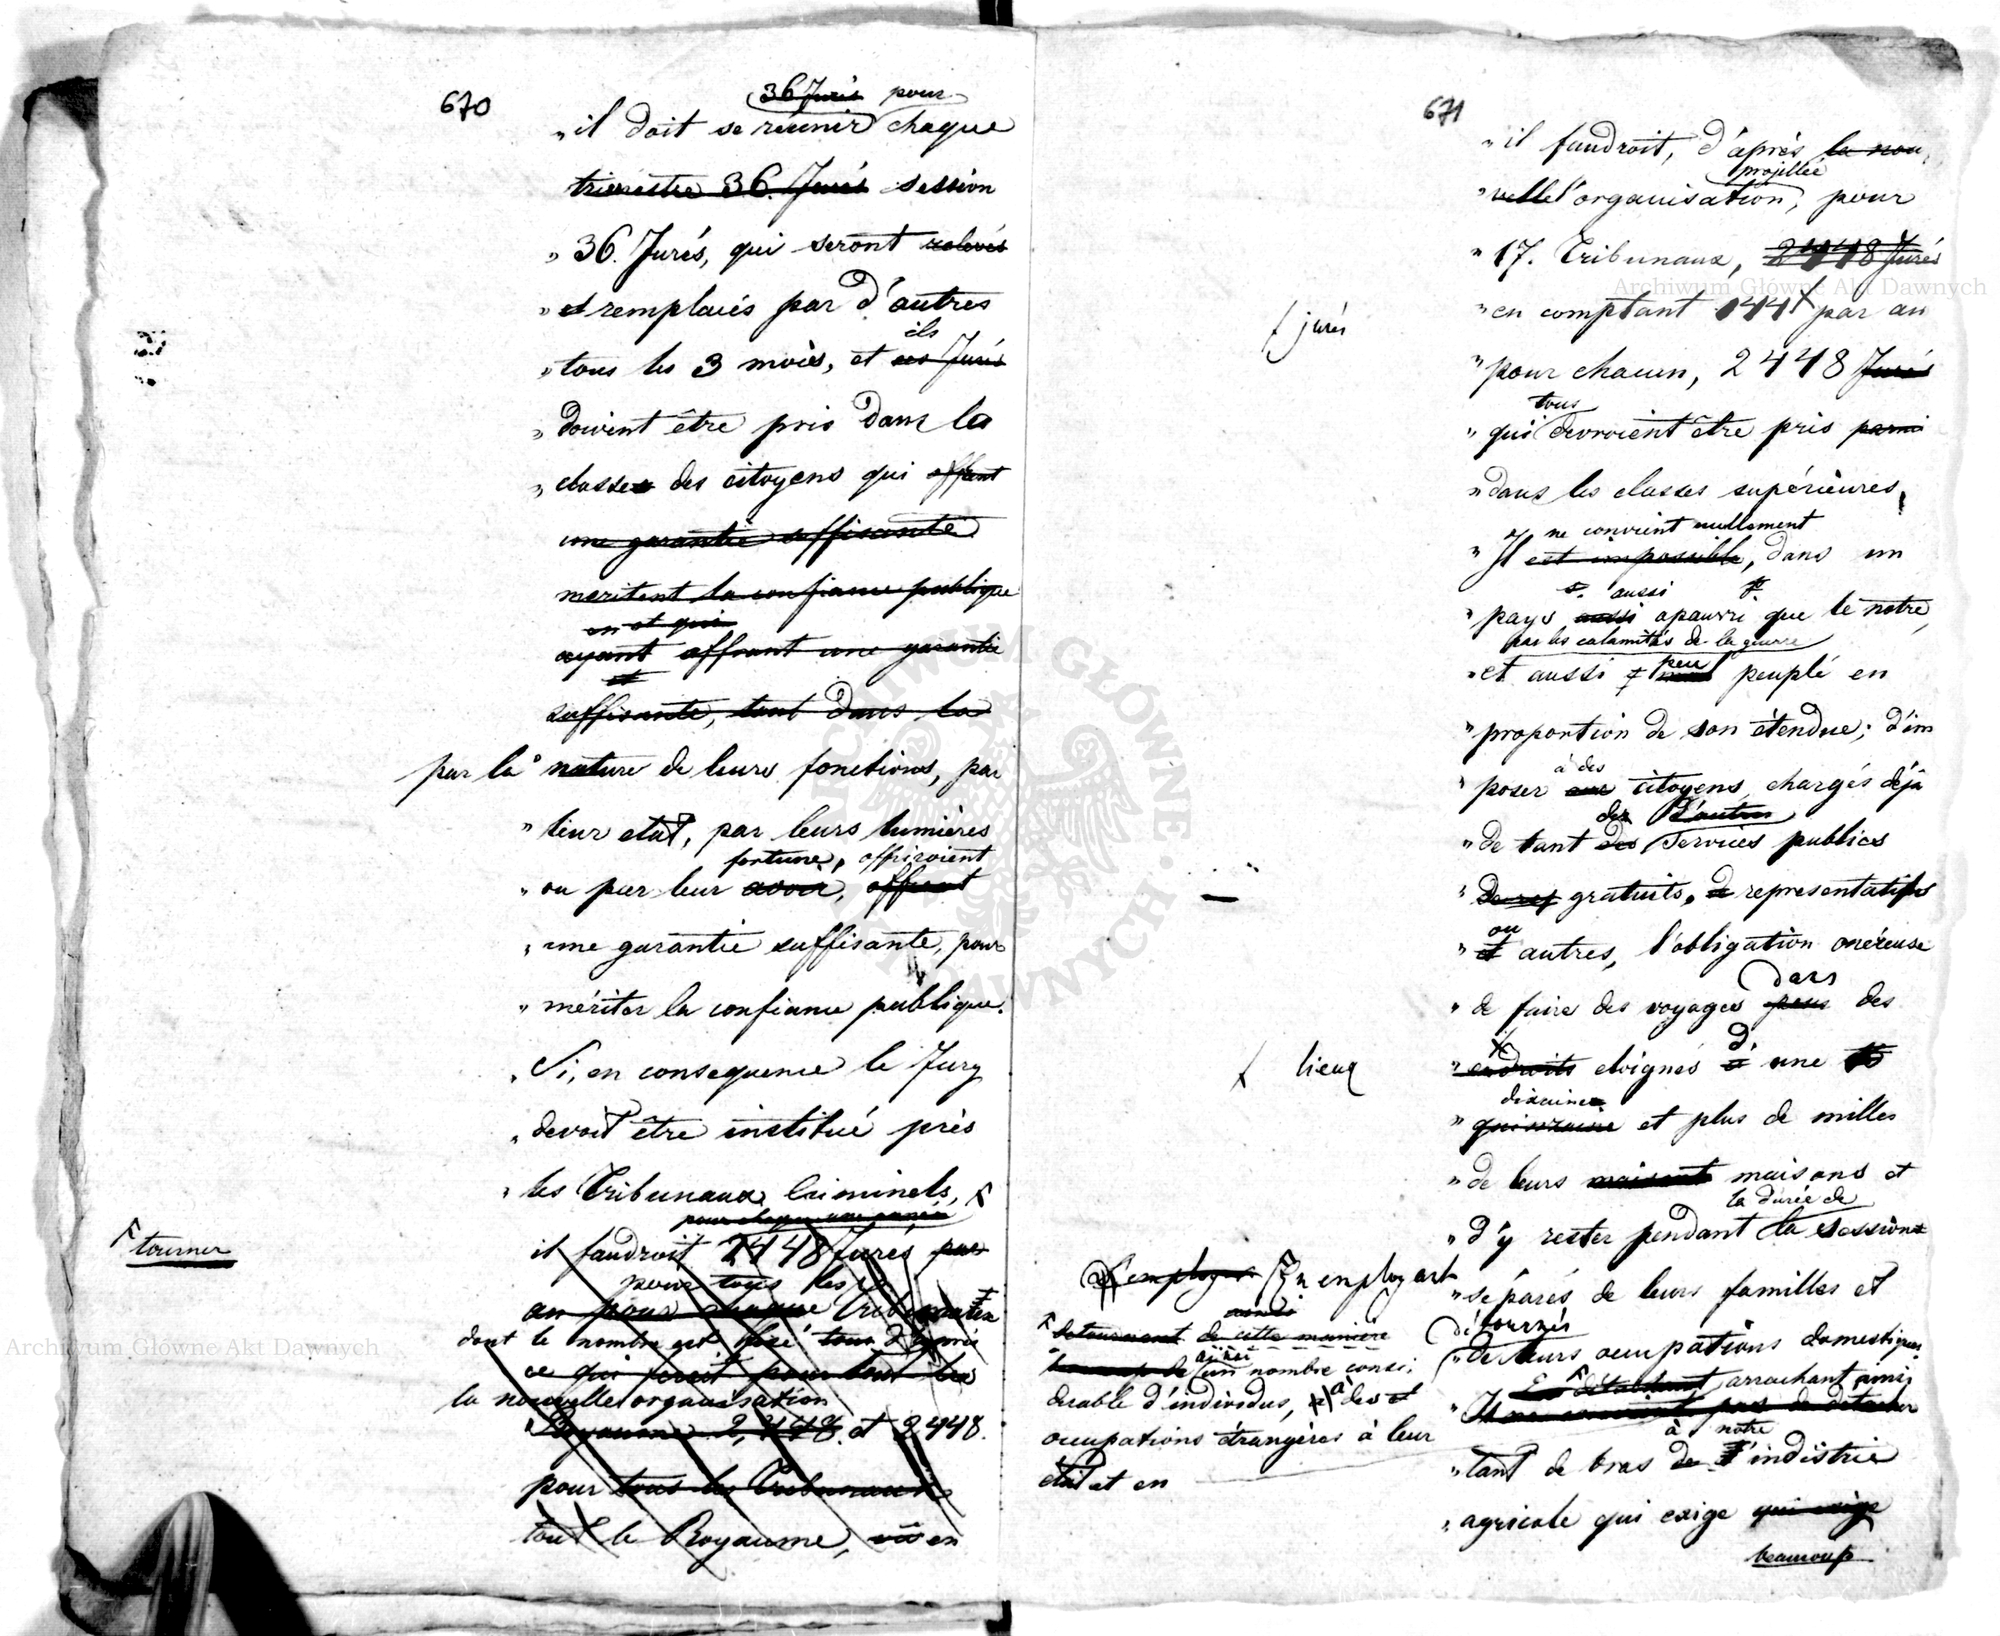 670
36 Jurés pour
„ il doit se réunir chaque
trimestre 36. Jurés session
„ 36. Jurés, qui seront relevés
„ et remplacés par d'autres
ils
„ tous les 3 mois, et ces Jurés
„ doivent être pris dans les
„ classes des citoyens qui offrent
une garantie suffisante
meritent la confiance publique
en et qui
ayant offrant une garantie
et
suffisante, tout dans la
par la nature de leurs fonctions, par
„ leur etat, par leurs lumières
fortune, offriroient
„ ou par leur avoir, offrent
„ une garantie suffisante, pour
„ mériter la confiance publique.
„ Si, en consequence le Jury
„ devoit être institué près
„ les Tribunaux Criminels,
pour chaque une année
tourner
il faudroit 2448 Jurés par
pour tous les
an pour chaque Tribunaux
dont le nombre est fixé tous d'après
ce qui feroit pour tout les
la nouvelle organisation
Royaume 2,448. et 2448.
pour tous les Tribunaux
tout le Royaume, en
671
„ il faudroit, d'après la nou
projettée
„ velle l'organisation, pour
„ 17. Tribunaux, 2448 Jurés
„ en comptant 144 par an
jurés
„ pour chacun, 2448 Jurés
tous
„ qui devroient être pris parmi
„ dans les classes supérieures,
ne convient nullement
„ Il est impossible, dans un
aussi
„ pays aussi apauvri que le notre,
par les calamités de la guerre
„ et aussi peu peuplé en
„ proportion de son étendue; d'im
à des
„ poser aux citoyens chargés déjà
de d'autres
„ de tant des services publics
„ gratuits, representatifs
ou
„ et autres, l'obligation onéreuse
dans
„ de faire des voyages pour des
lieux
„ endroits eloignés d' une
dixaine
„ quinzaine et plus de milles
„ de leurs maisons et
la durée de
„ d'y rester pendant la session
employer En employant
„ séparés de leurs familles et
détournés
detournent de cette maniere
„ de leurs occupations domestiques
beaucoup de ainsi un nombre consi:
arrachant ainsi
derable d'individus, à des
„ Il ne convient pas de detacher
à notre
occupations étrangères à leur
„ tant de bras de l'indistrie
état et en
„ agricole qui exige qui exige
beaucoup
Archiwum Główne Akt Dawnych
Archiwum Główne Akt Dawnych
ARCHIWUM GŁÓWNE AKT DAWNYCH